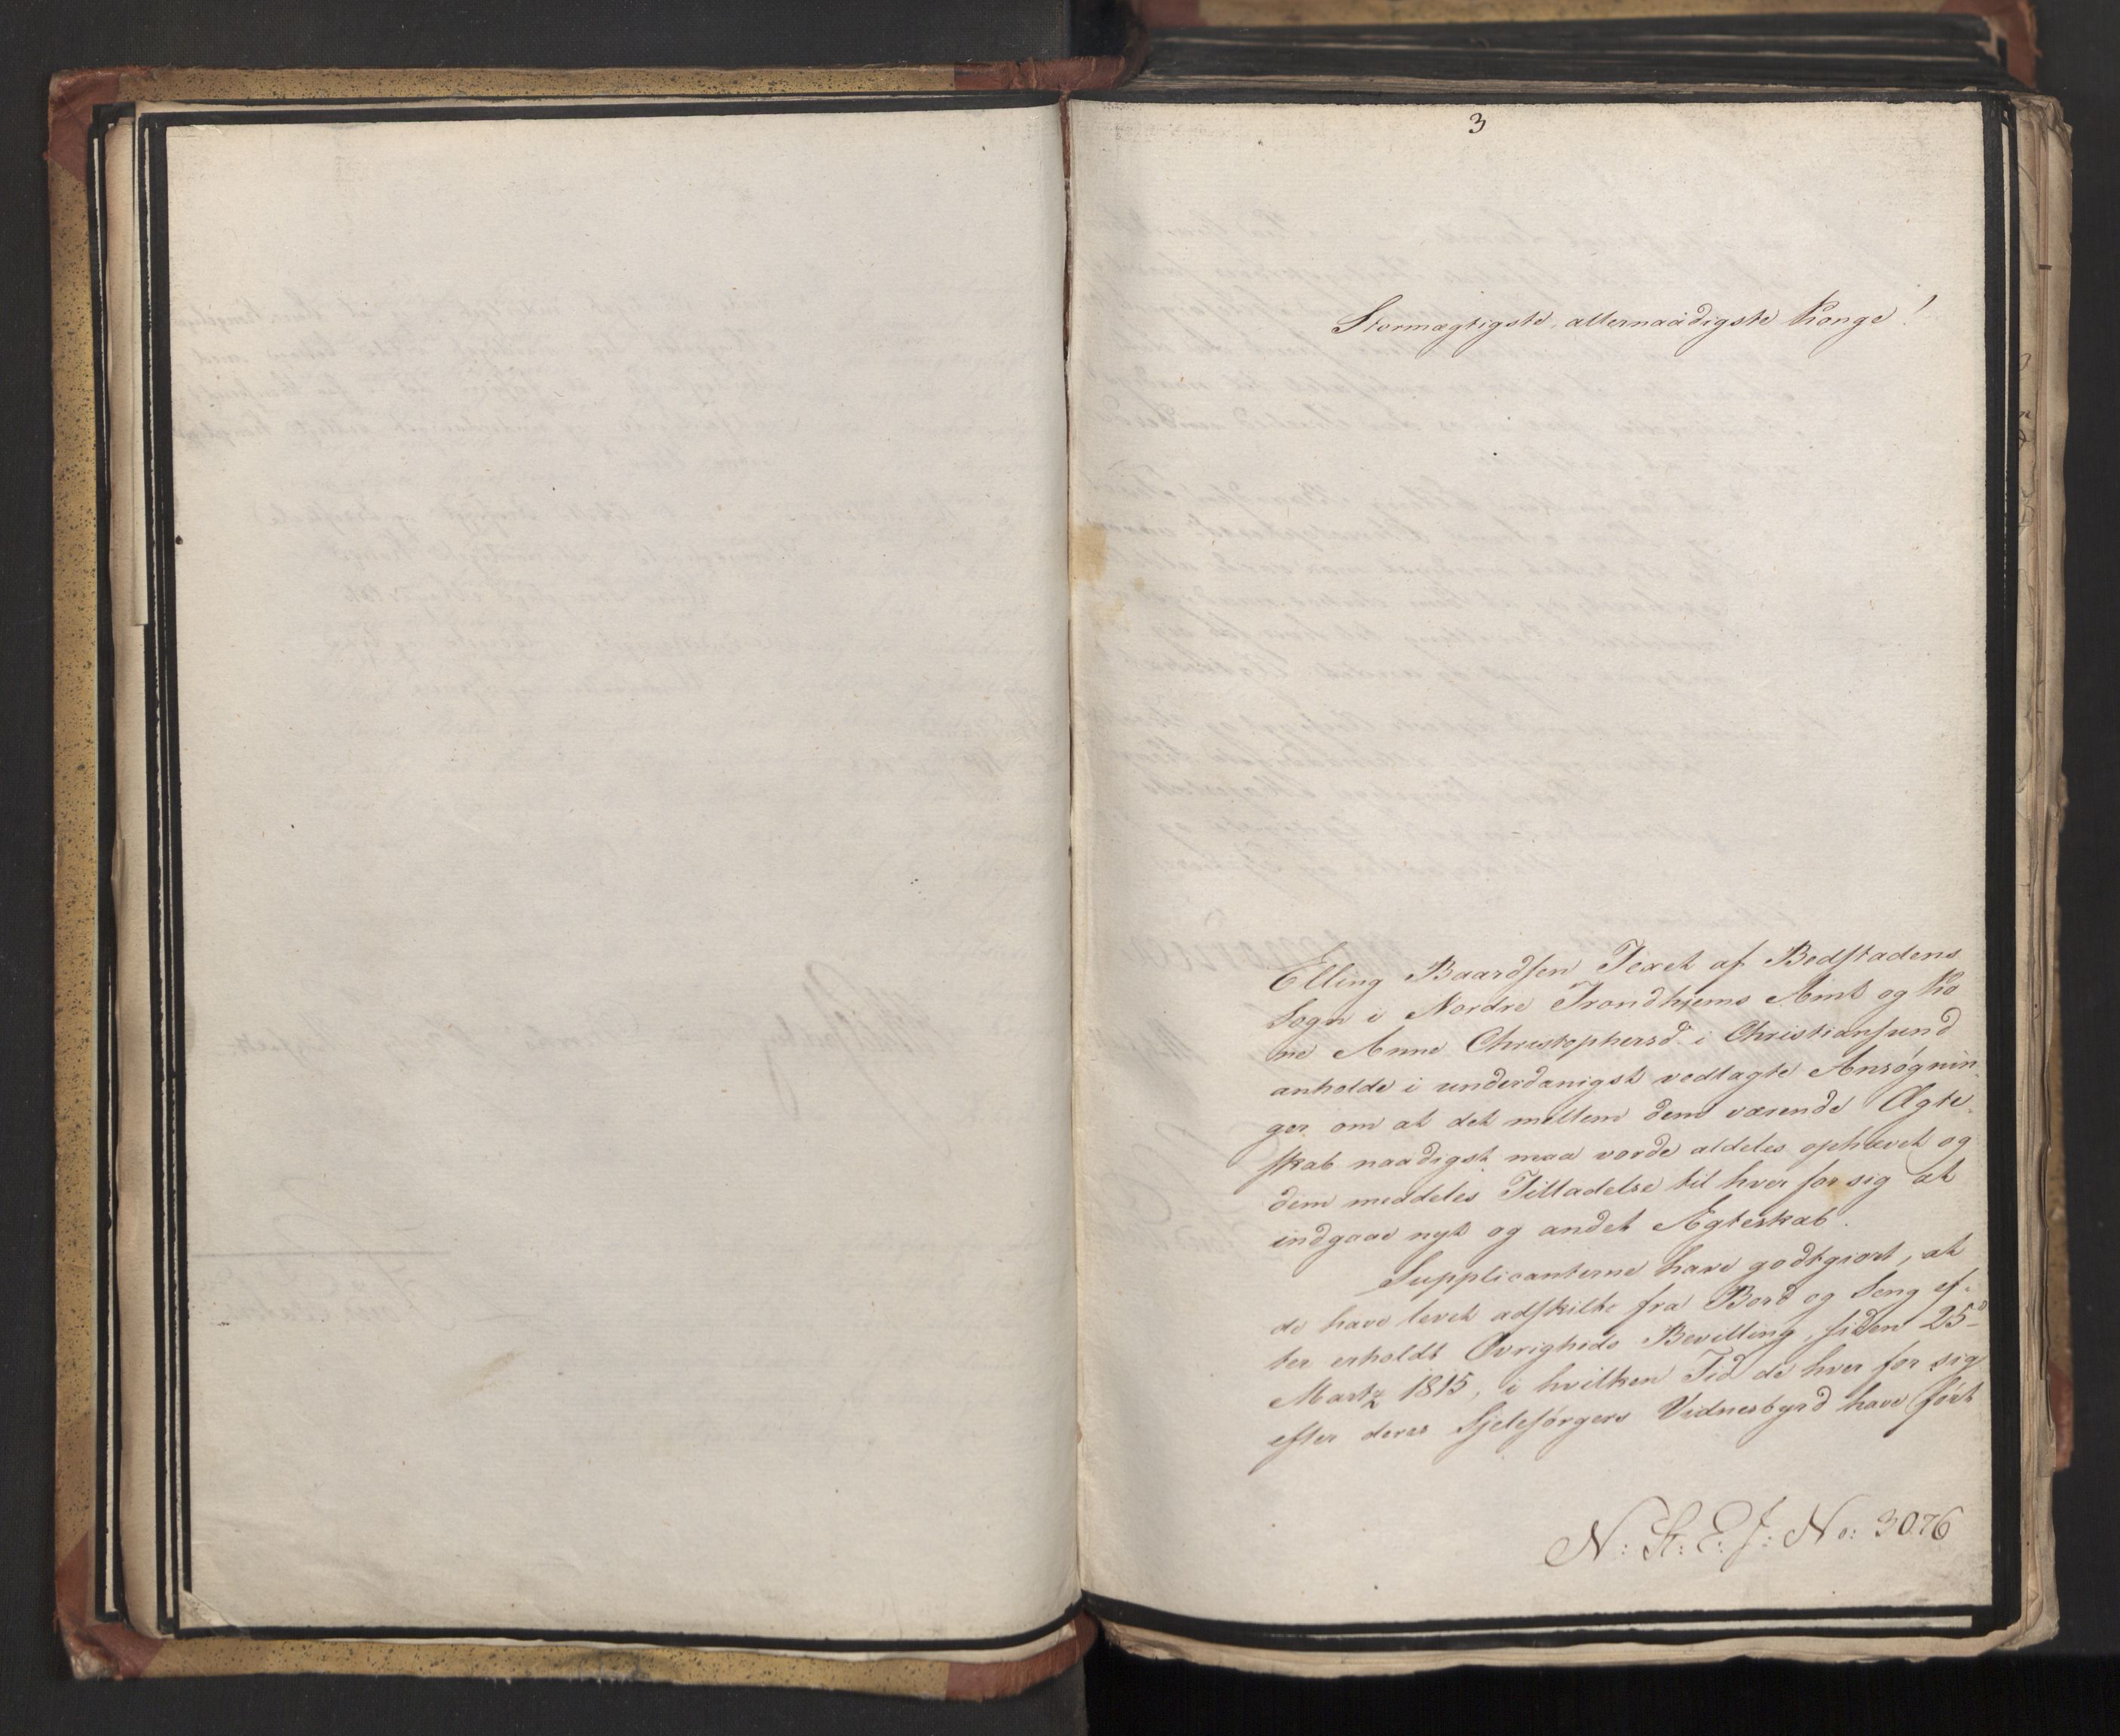 3
Stormægtigste, allernaadigste Konge!
Elling Baardsen Texet af Bedstadens
Sogn i Nordre Trondhjems Amt og Ko
ne Anne Christophersd. i Christiansund
anholde i underdanigst vedlagte Ansøgnin
ger om at det mellem dem værende Ægte,
skab naadigst maa vorde aldeles ophævet og
dem meddeles Tilladelse til hver for sig at
indgaae nyt og andet Ægteskab.
Supplicanterne have godtgiort, at
de have levet adskilte fra Bord og Seng ef-
ter erholdt Øvrigheds Bevilling, siden 25d
Martz 1815, i hvilken Tid de hver for sig
efter deres Sjelesørgers Vidnesbyrd have ført
N: St: E: J: No: 3076